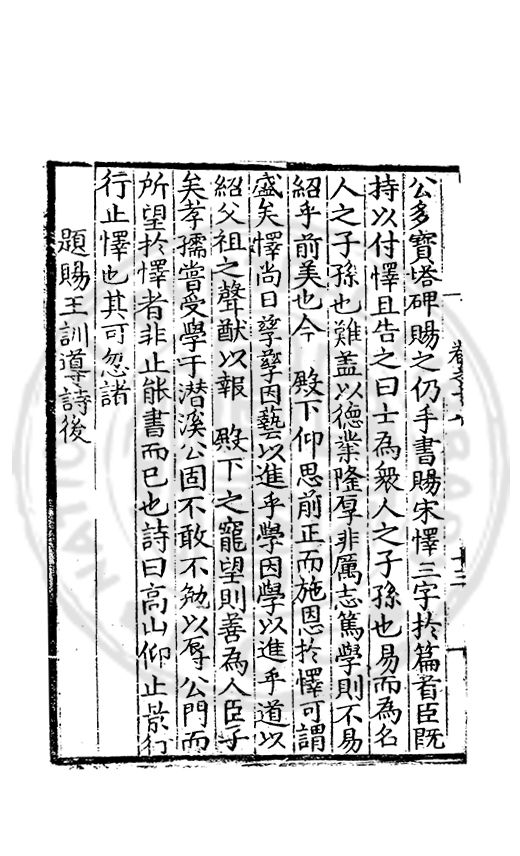 公多寶塔碑賜之仍手書賜宋懌三字於篇首臣既
持以付懌且告之曰士為衆人之子孫也易而為名
人之子孫也難盖以德業隆厚非厲志篤學則不易
紹乎前美也今 殿下仰思前正而施恩於懌可謂
盛矣懌尚日孳孳因藝以進乎學因學以進乎道以
紹父祖之聲猷以報 殿下之寵望則善為人臣子
矣孝孺嘗受學于潛溪公固不敢不勉以辱公門而
所望於懌者非止能書而已也詩曰高山仰止景行
行止懌也其可忽諸
題賜王訓導詩後
十三